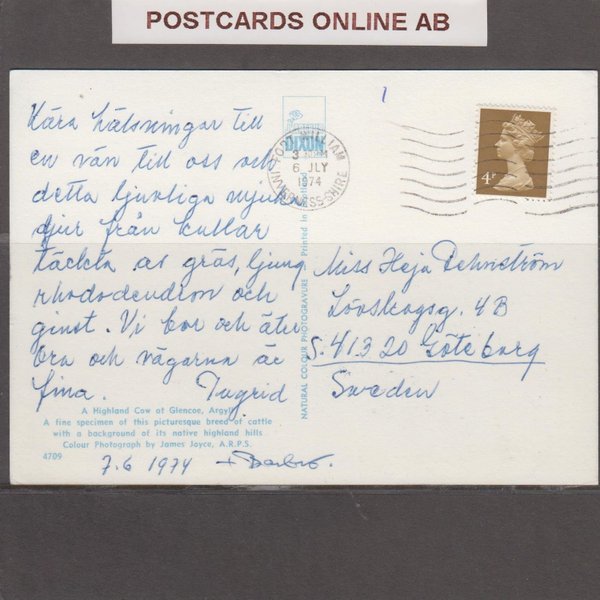 POSTCARDS ONLINE AB
Kära hälsningar till
en vän till oss och
detta ljuvliga mjuka
djur från kullar
täckta av gräs, ljung
rhododendron och
ginst. Vi bor och äter
bra och vägarna är
fina. Ingrid
A Highland Cow at Glencoe, Argyll
A fine specimen of this picturesque breed of cattle
with a background of its native highland hills
Colour Photograph by James Joyce, A.R.P.S.
4709
7.6 1974 + Barbro.
DIXON
NATURAL COLOUR PHOTOGRAVURE Printed in
FORT WILLIAM
6 JLY
1974
INVERNESS-SHIRE
1
4P
Miss Heja Dehnström
Lövskogsg. 4B
S. 413 20 Göteborg
Sweden